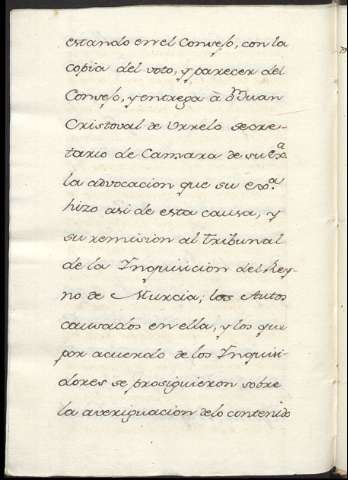 estando en el Consejo, con la
copia del voto, y parecer del
Consejo, y entrega à D. Juan
Cristoval de Urrelo secre-
tario de Camara de su Exª.
la advocacion que su exª.
hizo asi de esta causa, y
su remision al tribunal
de la Inquisicion del Rey-
no de Murcia; los Autos
causados en ella, y los que
por acuerdo de los Inquisi-
dores se prosiguieron sobre
la averiguacion de lo contenido